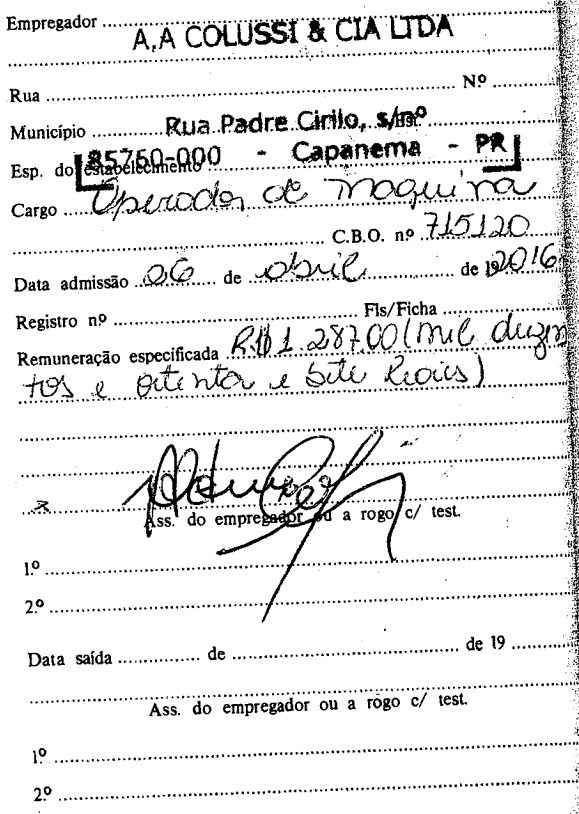 Empregador
A,A COLUSSI & CIA LTDA
Rua Nº
Município Rua Padre Cirilo, s/nº Est.
85760-000 - Capanema - PR
Esp. do estabelecimento
Cargo Operador de maquina
C.B.O. nº 715120
Data admissão 06 de abril de 19 2016
Registro nº Fls/Ficha
Remuneração especificada R$ 1.287,00 (mil duzen
tos e oitenta e sete Reais)
Ass. do empregador ou a rogo c/ test.
1º
2º
Data saída de de 19
Ass. do empregador ou a rogo c/ test.
1º
2º